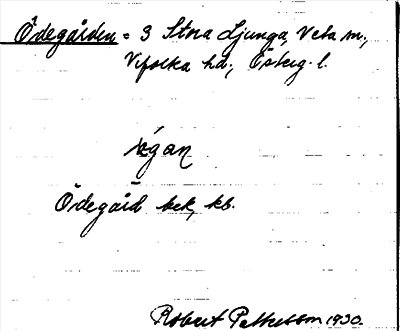 Ödegården = 3 Stora Ljunga, Veta sn.,
Vifolka hd., Österg. l.
vǵan
Ödegård bek, kb.
Robert Pettersson 1930.